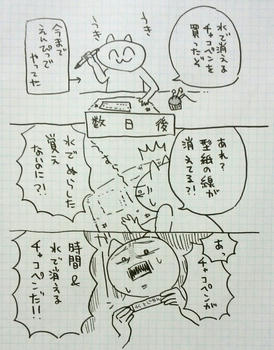 水で消える
チャコペンを
買ったぞ
うき
うき
今まで
えんぴつで
やってた
数日後
あれ？
型紙の線が
消えてる？！
水でぬらした
覚え
ないのに？！
あっ
チャコペンが
時間&
水で消える
チャコペンだ！！